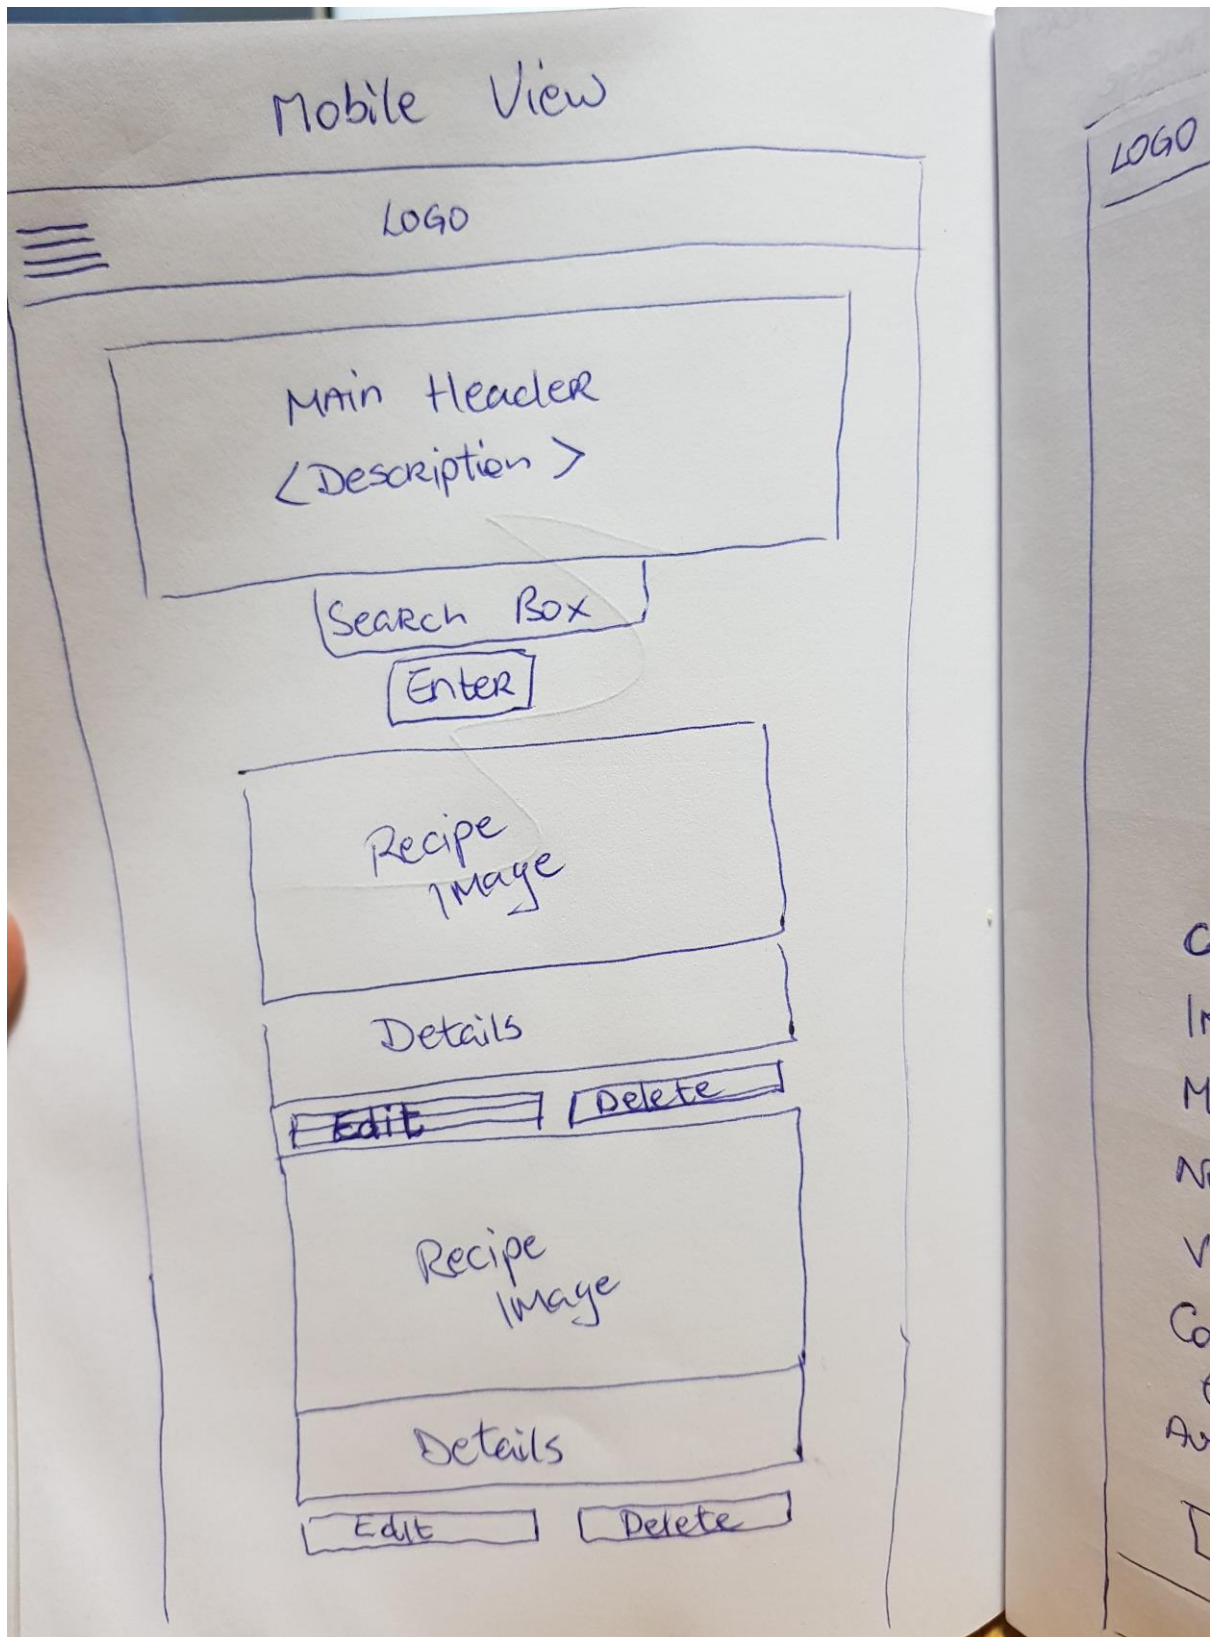 Mobile View
LOGO
Main Header
<Description>
Search Box
Enter
Recipe
Image
Details
Edit Delete
Recipe
Image
Details
Edit Delete
LOGO